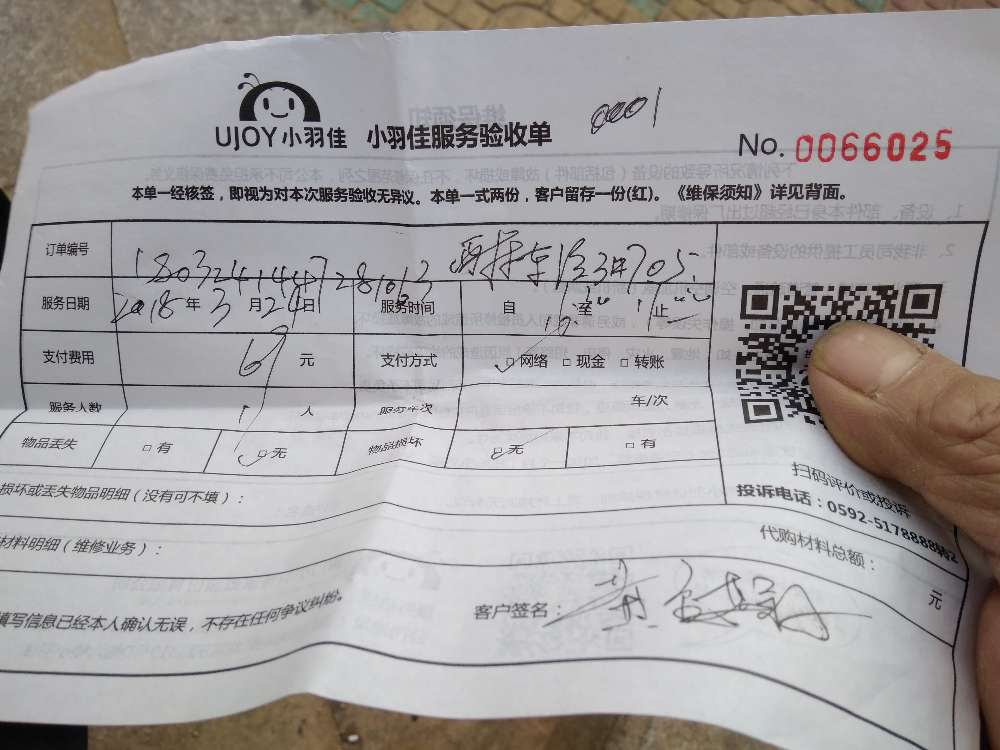 UJOY小羽佳 小羽佳服务验收单 0001
No. 0066025
本单一经核签，即视为对本次服务验收无异议。本单一式两份，客户留存一份(红)。《维保须知》详见背面。
订单编号
服务日期 2018年3月24日 服务时间 自 室 止
支付费用 元 支付方式 □网络 □现金 □转账
服务人数 1 人 服务车次 车/次
物品丢失 □有 □无 物品损坏 □无 □有
扫码评价或投诉
损坏或丢失物品明细(没有可不填)：
投诉电话：0592-5178888
材料明细(维修业务)： 代购材料总额： 元
填写信息已经本人确认无误，不存在任何争议纠纷。 客户签名：